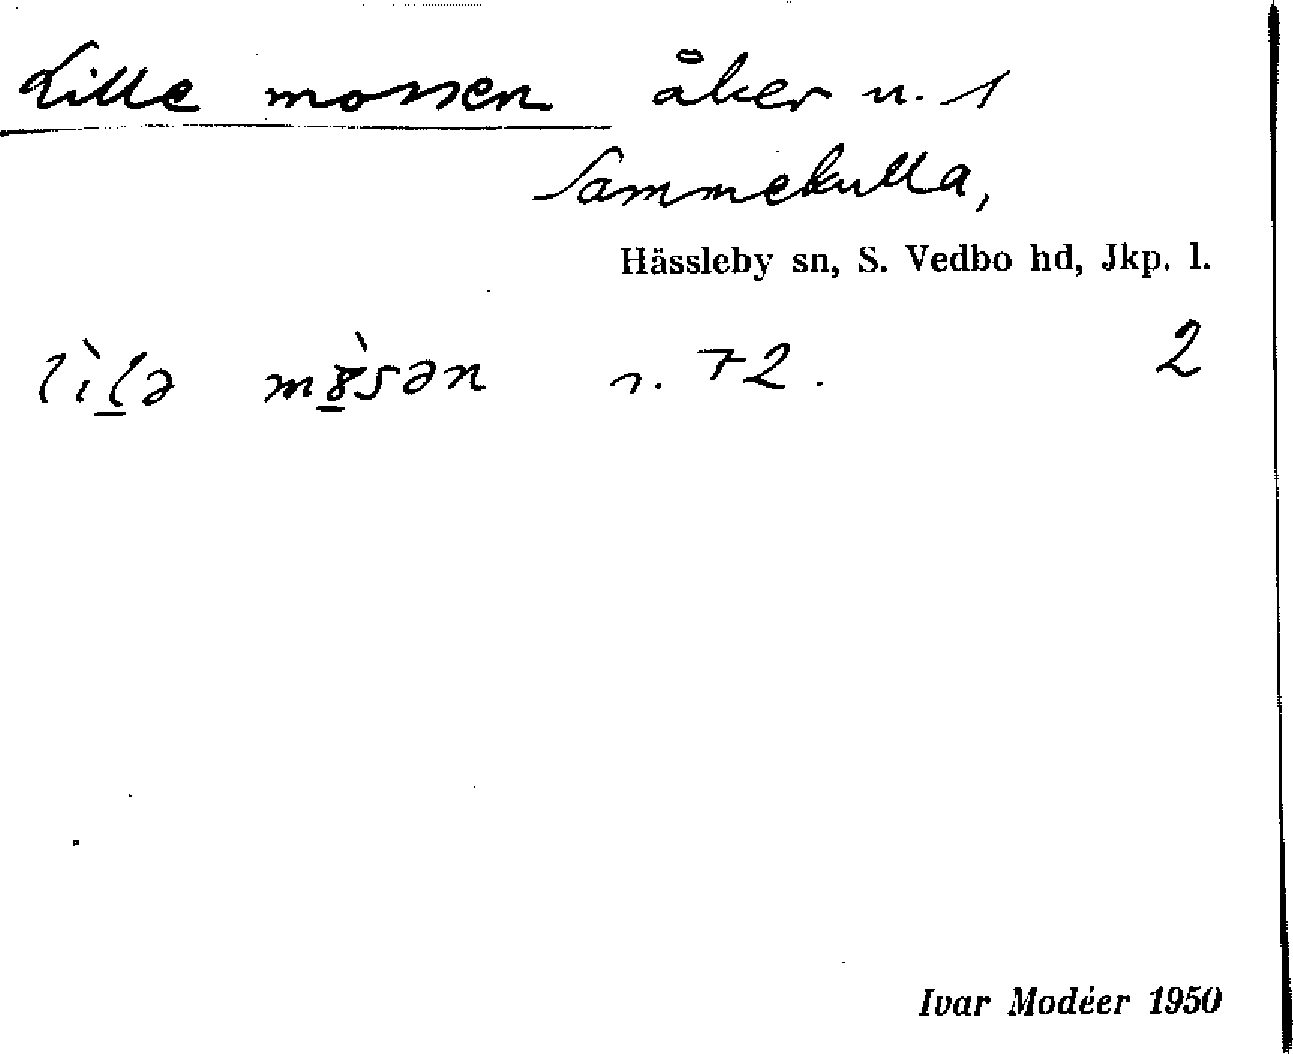 Lille mossen åker n. 1
Sammekulla,
Hässleby sn, S. Vedbo hd, Jkp. l.
lìl̲ə mȣ̲̀sən n. 72. 2
Ivar Modéer 1950